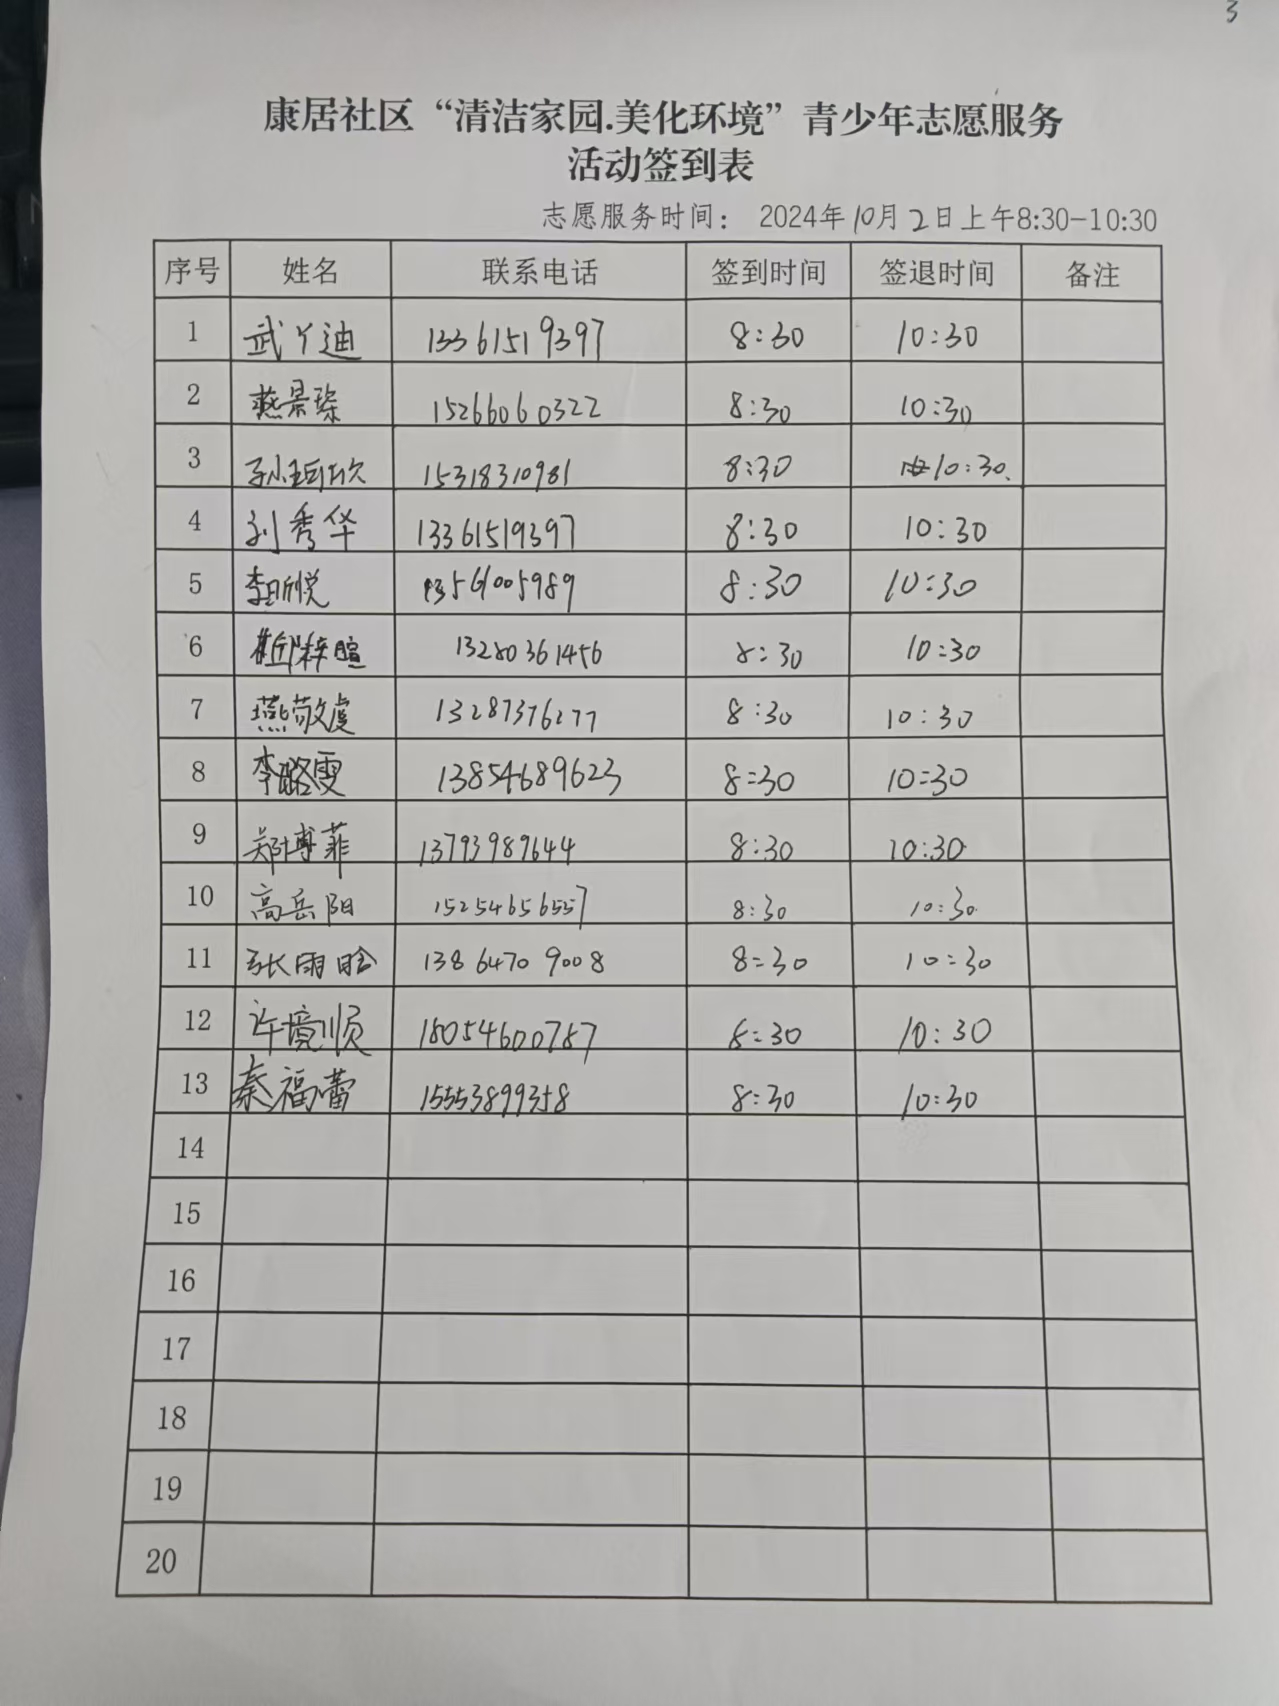 3
康居社区“清洁家园.美化环境”青少年志愿服务
活动签到表
志愿服务时间： 2024年10月2日上午8:30-10:30
序号 姓名 联系电话 签到时间 签退时间 备注
1 武丫迪 13361519397 8:30 10:30
2 燕景琛 15266060322 8:30 10:30
3 15318310981 8:30 10:30
4 刘秀华 13361519397 8:30 10:30
5 李昕悦 13561005989 8:30 10:30
6 13280361456 8:30 10:30
7 燕敬虔 13287376277 8:30 10:30
8 李璐雯 13854689623 8:30 10:30
9 郑博菲 13793989644 8:30 10:30
10 高岳阳 15254656557 8:30 10:30
11 张雨晗 13864709008 8:30 10:30
12 许境顺 18054600787 8:30 10:30
13 秦福蕾 15553899358 8:30 10:30
14
15
16
17
18
19
20